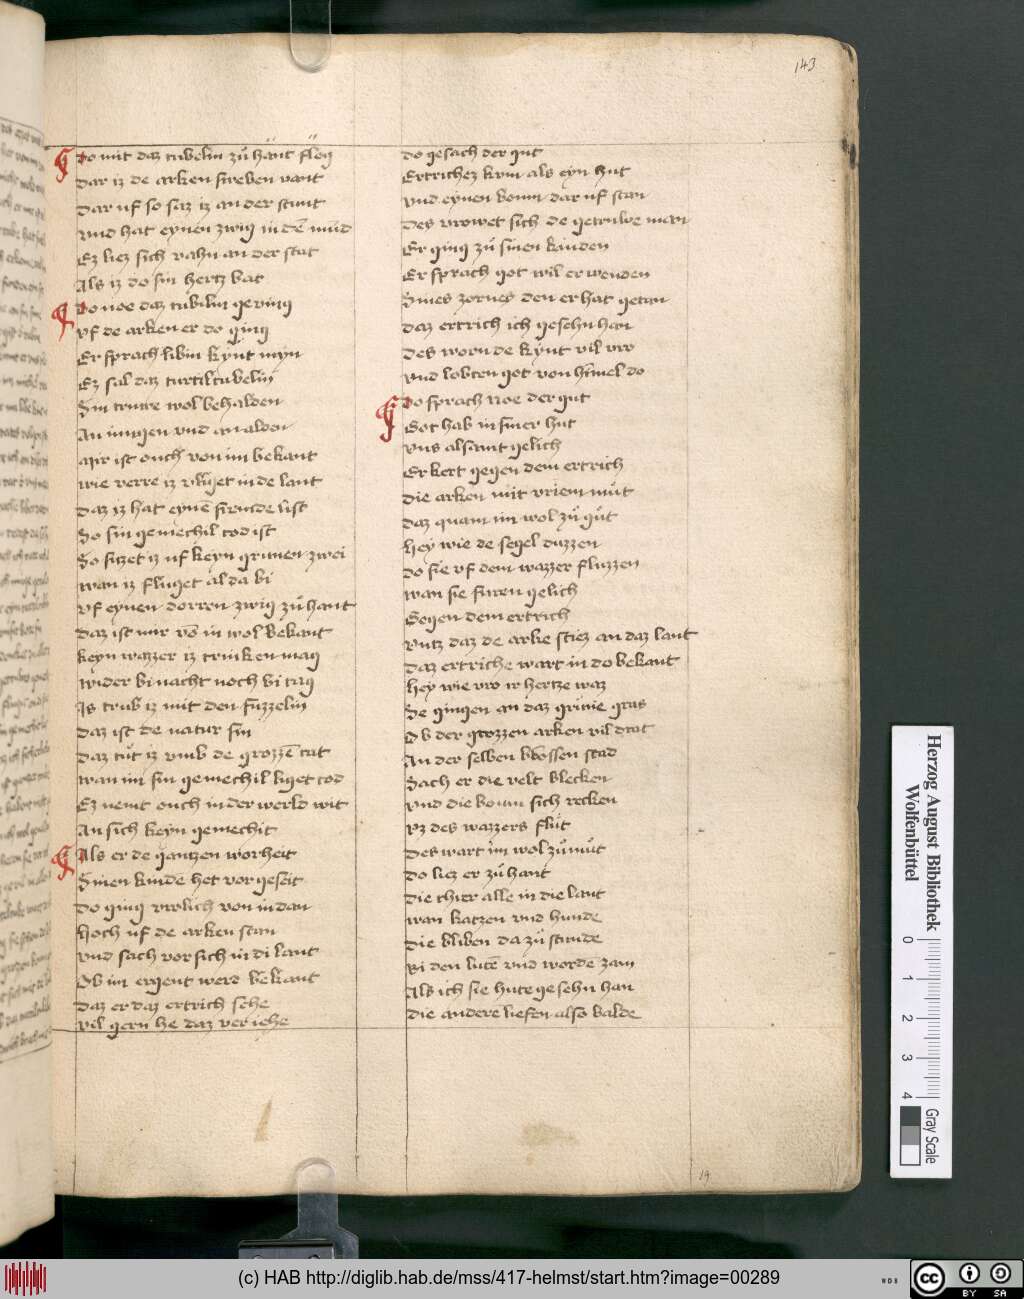 143
Do mit daz tubelin zů hant floug
Dar iz de arken sweben vant
Dar uf so saz iz an der stunt
Vnd hat eynen zwig in dē mūd
Ez liez sich vahn an der stat
Als iz do sin hertz bat
Do noe daz tubilin geving
Vf de arken er do ging
Er sprach libin kynt myn
Ez sal daz turtiltubelin
Sin truwe wol behalden
An iungen vnd an alden
Mir ist ouch von im bekant
Wie verre iz vluget in de lant
Daz iz hat eynē fremde list
So sin gemechil tod ist
So sitzet iz uf keyn grunen zwei
Wan iz fluget al da bi
Vf eynen dorren zwig zů hant
Daz ist mir vō in wol bekant
Keyn wazzer iz trinken mag
Wider bi nacht noch bi tag
Is trub iz mit den fuzzelin
Daz ist de natur sin
Daz tůt iz vmb de grozzē tat
Wan im sin gemechil liget tod
Ez nemt ouch in der werld wit
An sich keyn gemechit
Als er de gantzen worheit
Sinen kinde het vor geseit
Do ging vrolich von in dan
Hoch uf de arken stan
Vnd sach vor sich in di lant
Ob im ergent werd bekant
Daz er daz ertrich sehe
Vil gern he daz veriehe
Do gesach der gut
Ertrichez krim als eyn hut
Vnd eynen boum dar uf stan
Des vrowet sich de getruwe man
Er ging zů sinen kinden
Er sprach got wil erwenden
Sines zornes den er hat getan
Daz ertrich ich gesehn han
Des worn de kynt vil vro
Vnd lobten got von himel do
Do sprach noe der gut
Got hab in siner hut
Vns alsamt gelich
Er kert gegen dem ertrich
Die arken mit vriem můt
Daz quam im wol zů gůt
Hey wie de segel duzzen
Do sie vf dem wazzer fluzzen
Wan sie furen gelich
Gegen dem ertrich
Vntz daz de arke stiez an daz lant
Daz ertriche wart in do bekant
Hey wie vro ir hertze waz
Se gingen an daz grüne gras
Vb der grozzen arken vil drot
An der selben bossen stad
Sach er die velt blecken
Vnd die boum sich recken
Vz des wazzers flůt
Des wart im wol zů můt
Do liez er zů hant
Die thier alle in die lant
Wan katzen vnd hunde
Die bliben da zů stunde
Bi den lutē vnd wordē zam
Als ich sie hute gesehn han
Die andere liefen also balde
19
Herzog August Bibliothek
Wolfenbüttel
0 1 2 3 4
Gray Scale
(c) HAB http://diglib.hab.de/mss/417-helmst/start.htm?image=00289
WDB
cc BY SA